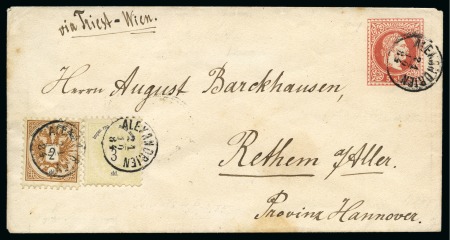 via Triest-Wien.
Herrn August Barckhausen,
Rethem a/Aller.
Provinz Hannover.
ALEXANDRIEN
ALEXANDRIEN
2